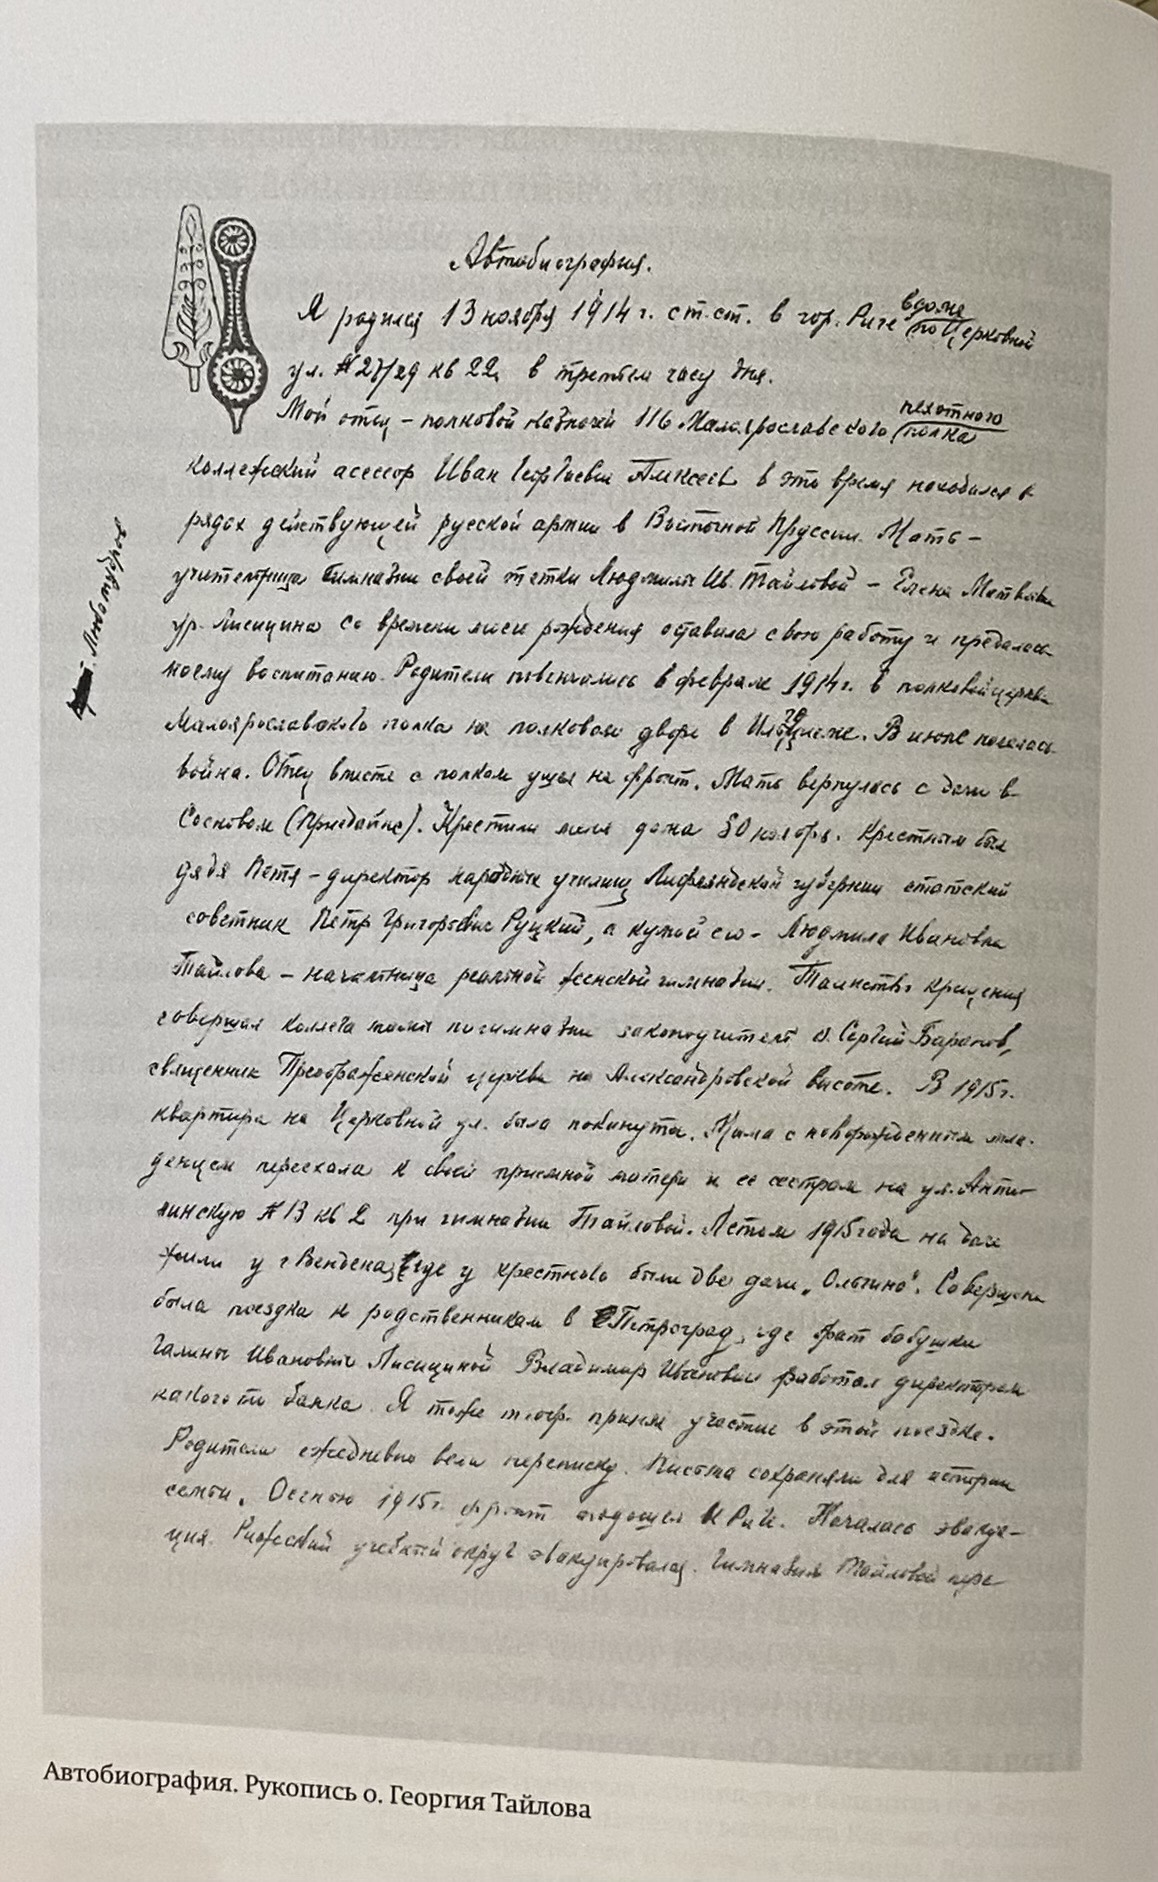 Автобиография.
Я родился 13 ноября 1914 г. ст. ст. в гор. Риге в доме по Церковной
ул. № 27/29 кв 22, в третьем часу дня.
Мой отец – полковой казначей 116 Малоярославского пехотного полка
коллежский асессор Иван Георгиевич Алексеев в это время находился в
рядах действующей русской армии в Восточной Пруссии. Мать –
учительница гимназии своей тетки Людмилы Ив. Тайловой – Елена Матвеевна
ур. Лисицина со времени моего рождения оставила свою работу и предалась
моему воспитанию. Родители повенчались в феврале 1914 г. в полковой церкви
Малоярославского полка на полковом дворе в . В июле началась
война. Отец вместе с полком ушел на фронт. Мать вернулась с дачи в
Сосновом (Приедайне). Крестили меня дома 30 ноября. Крестным был
дядя Петя – директор народных училищ Лифляндской губернии статский
советник Петр Григорьевич Руцкий, а кумой его – Людмила Ивановна
Тайлова – начальница реальной женской гимназии. Таинство крещения
совершал коллега мамы по гимназии законоучитель о. Сергий Баранов,
священник Преображенской церкви на Александровской высоте. В 1915 г.
квартира на Церковной ул. была покинута. Мама с новорожденным мла-
денцем переехала к своей приемной матери и ее сестрам на ул. Анти-
нинскую № 13 кв 2 при гимназии Тайловой. Летом 1915 года на даче
жили у г Вендена, где у крестного были две дачи „Ольгино". Совершена
была поездка к родственникам в Петроград, где брат бабушки
Галины Ивановны Лисициной Владимир Иванович работал директором
какого то банка. Я тоже принял участие в этой поездке.
Родители ежедневно вели переписку. Письма сохраняли для истории
семьи. Осенью 1915 г. фронт подошел к Риге. Началась эвакуа-
ция. Рижский учебный округ эвакуировался. Гимназия Тайловой пере
Автобиография. Рукопись о. Георгия Тайлова